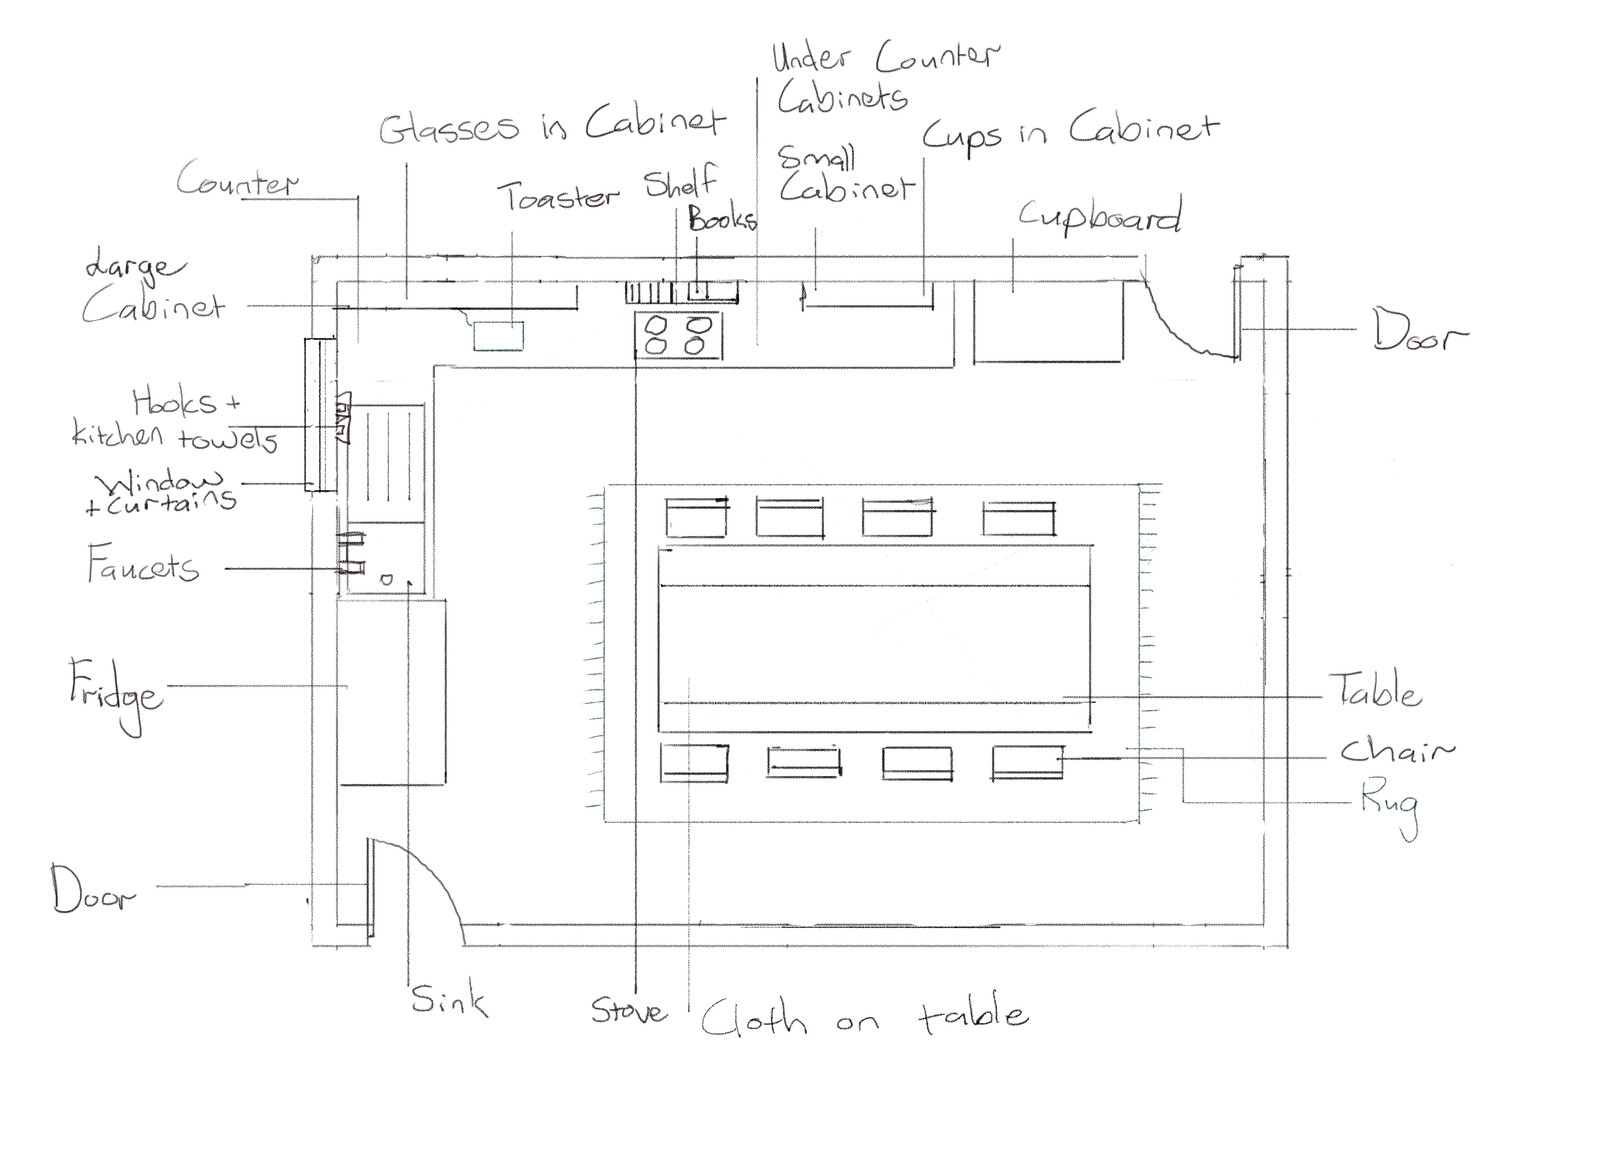 Under Counter
Cabinets
Glasses in Cabinet
Cups in Cabinet
Small
Cabinet
Counter
Toaster
Shelf
Books
Cupboard
Large
Cabinet
Door
Hooks +
kitchen towels
Window
+ Curtains
Faucets
Fridge
Table
Chair
Rug
Door
Sink
Stove
Cloth on table